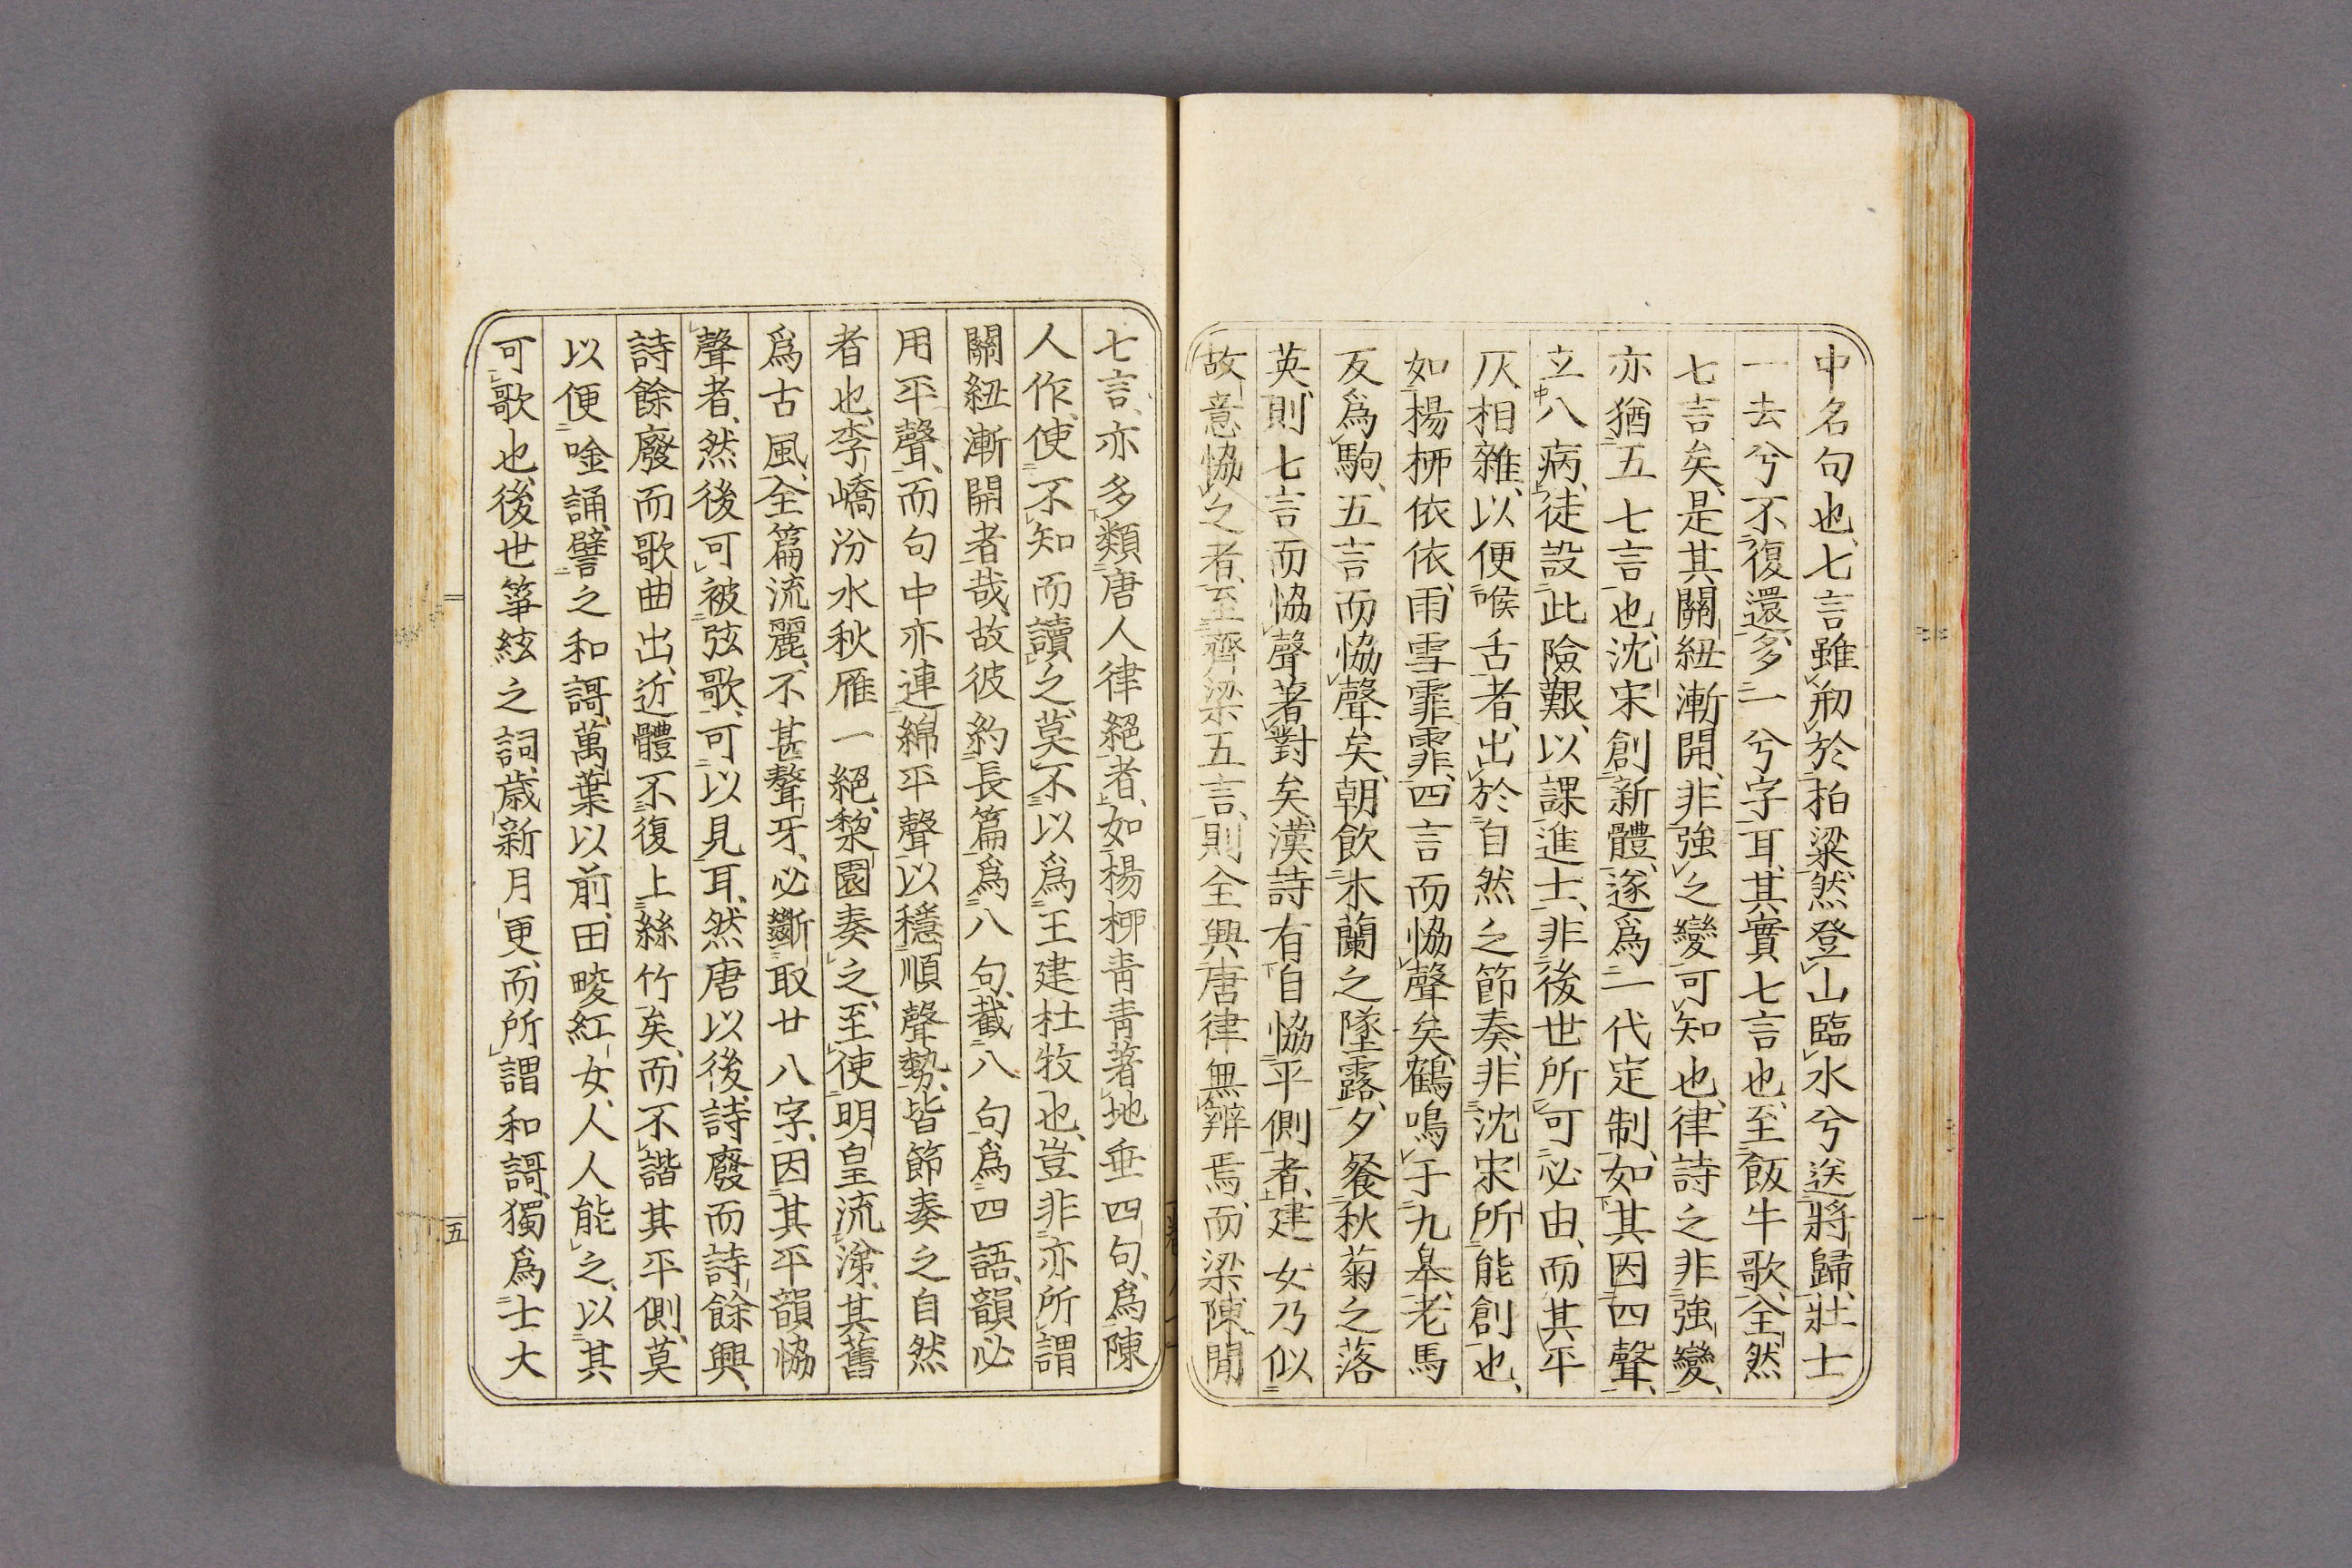 中名句也、七言雖刱於柏粱、然登山臨水兮送將歸、壯士
一去兮不復還、多一兮字耳、其實七言也、至飯牛歌、全然
七言矣、是其關紐漸開、非強之變可知也、律詩之非強變、
亦猶五七言也、沈宋創新體、遂爲一代定制、如其因四聲、
立八病、徒設此險艱、以課進士、非後世所可必由、而其平
仄相雜、以便喉舌者、出於自然之節奏、非沈宋所能創也、
如楊栁依依、雨雪霏霏、四言而恊聲矣、鶴鳴于九皋、老馬
反爲駒、五言而恊聲矣、朝飲木蘭之墜露、夕餐秋菊之落
英、則七言而恊聲著對矣、漢詩有自恊平側者、建女乃似
故意恊之者、至齊梁五言、則全興唐律無辨焉、而梁陳閒
七言、亦多類唐人律絕者、如楊栁靑靑著地垂四句、爲陳
人作、使不知而讀之、莫不以爲王建杜牧也、豈非亦所謂
關紐漸開者哉、故彼約長篇爲八句、截八句爲四語、韻必
用平聲、而句中亦連綿平聲以穩順聲勢、皆節奏之自然
者也、李嶠汾水秋雁一絕、黎園奏之、至使明皇流涕、其舊
爲古風、全篇流麗、不甚聱牙、必斷取廿八字、因其平韻恊
聲者、然後可被弦歌、可以見耳、然唐以後、詩廢而詩餘興、
詩餘廢而歌曲出、近體不復上絲竹矣、而不諧其平側、莫
以便唫誦、譬之和謌、萬葉以前、田畯紅女、人人能之、以其
可歌也、後世箏絃之詞、歲新月更、而所謂和謌、獨爲士大
五